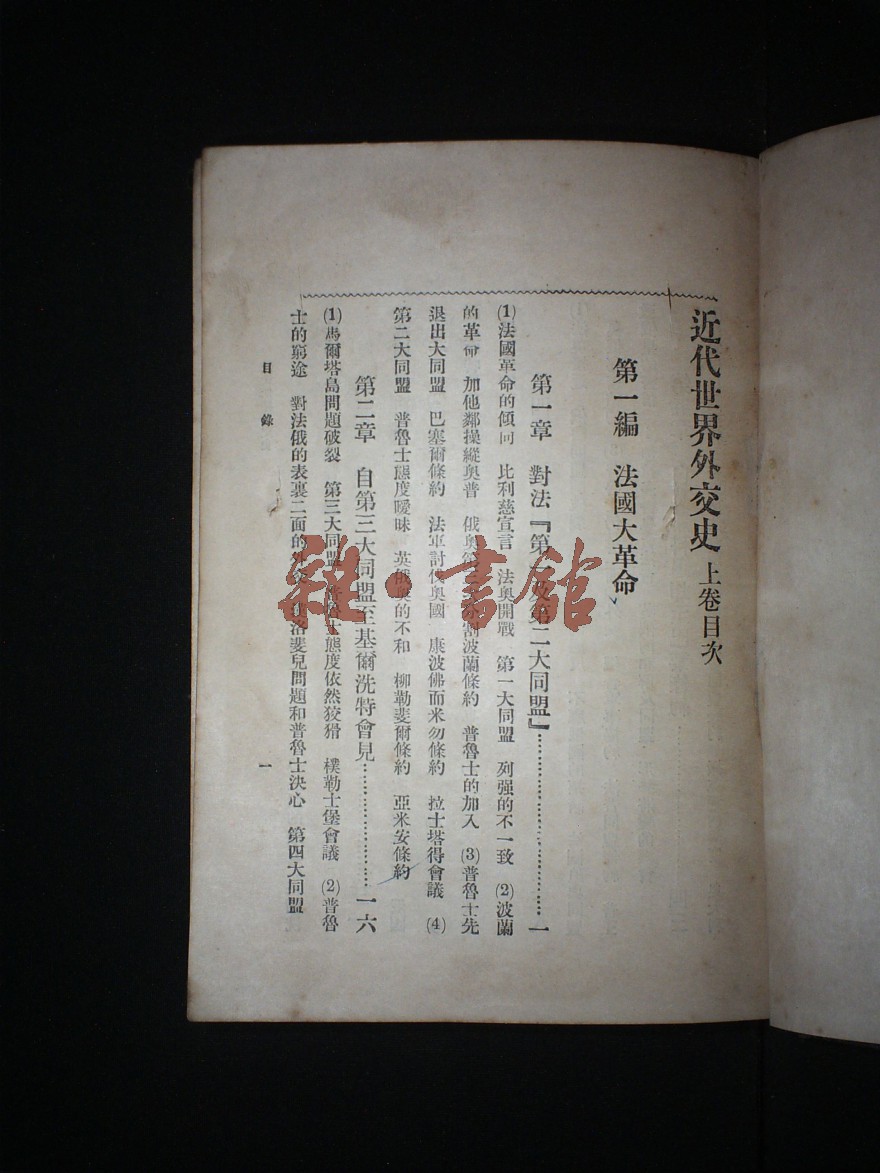 近代世界外交史 上卷目次
第一編 法國大革命
第一章 對法『第一及第二大同盟』……………………一
(1)法國革命的傾向 比利慈宣言 法奧開戰 第一大同盟 列强的不一致 (2)波蘭
的革命 加他鄰操縱奧普 俄奧 割波蘭條約 普魯士的加入 (3)普魯士先
退出大同盟 巴塞爾條約 法軍討伐奧國 康波佛而米勿條約 拉士塔得會議 (4)
第二大同盟 普魯士態度曖昧 英俄奧的不和 柳勒斐爾條約 亞米安條約
第二章 自第三大同盟至基爾洗特會見……………………一六
(1)馬爾塔島問題破裂 第三大同盟 普魯士態度依然狡猾 樸勒士堡會議 (2)普魯
士的窮途 對法俄的表裏二面的外交 洛斐兒問題和普魯士決心 第四大同盟
目錄
一
雜·書館